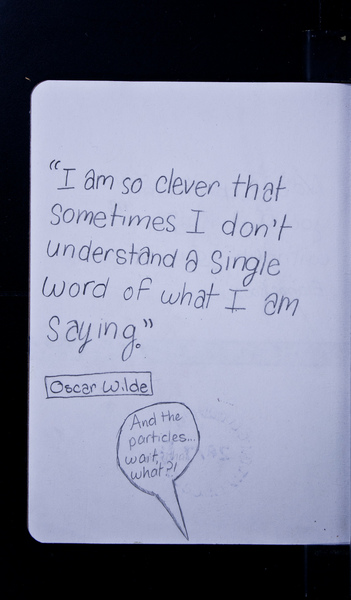 "I am so clever that
sometimes I don't
understand a single
word of what I am
saying."
Oscar Wilde
And the
particles...
wait,
what?!